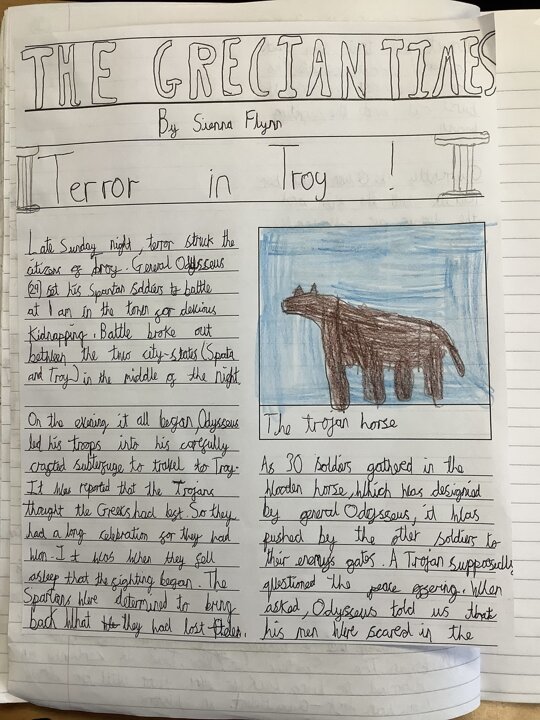 THE GRECIAN TIMES
By Sienna Flynn
Terror in Troy!
Late Sunday night, terror struck the
citizens of Troy. General Odysseus
(29) set his Spartan soldiers to battle
at 1 am in the town for devious
Kidnapping. Battle broke out
between the two city-states (Sparta
and Troy) in the middle of the night.
On the evening it all began, Odysseus
led his troops into his carefully
crafted subterfuge to travel to Troy.
It was reported that the Trojans
thought the Greeks had lost. So they
had a long celebration for they had
won. It was when they fell
asleep that the fighting began. The
Spartans were determined to bring
back what they had lost
The trojan horse
As 30 soldiers gathered in the
wooden horse, which was designed
by general Odysseus, it was
pushed by the other soldiers to
their enemys gates. A Trojan supposedly
questioned the peace offering. When
asked, Odysseus told us that
his men were scared in the